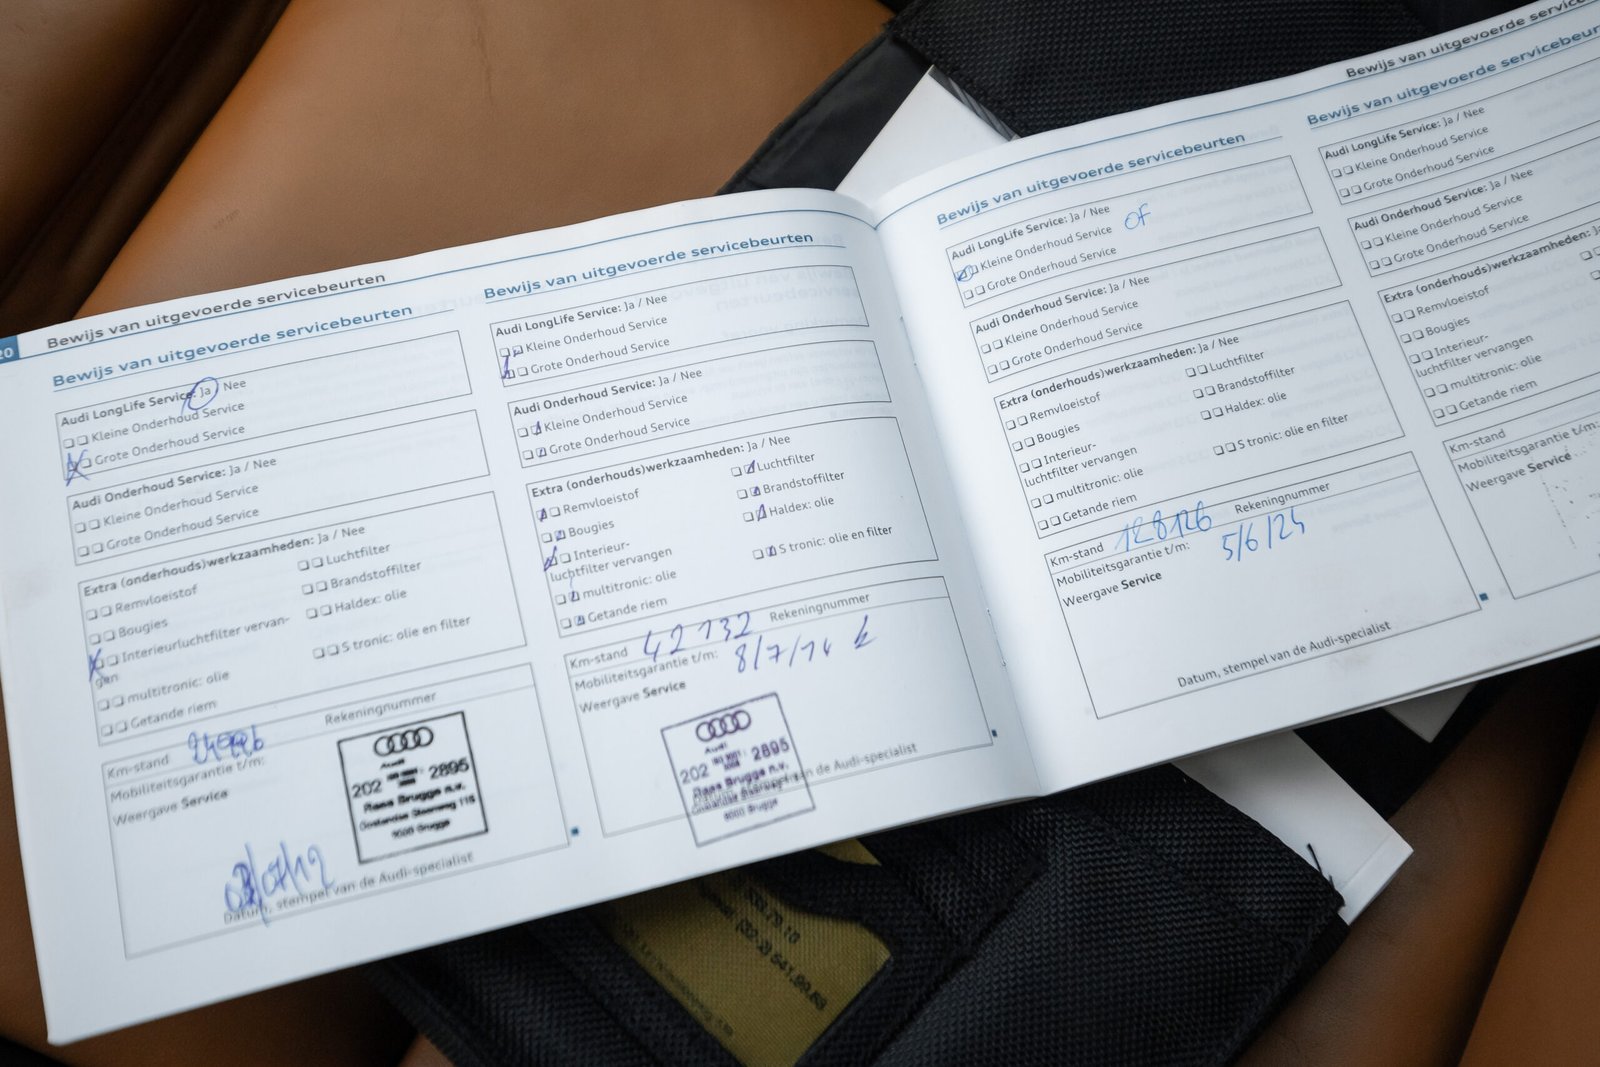 20
Bewijs van uitgevoerde servicebeurten
Bewijs van uitgevoerde servicebeurten
Audi LongLife Service: Ja / Nee
Kleine Onderhoud Service
Grote Onderhoud Service
Audi Onderhoud Service: Ja / Nee
Kleine Onderhoud Service
Grote Onderhoud Service
Extra (onderhouds)werkzaamheden: Ja / Nee
Remvloeistof
Luchtfilter
Bougies
Brandstoffilter
Interieurluchtfilter vervan-
gen
Haldex: olie
multitronic: olie
S tronic: olie en filter
Getande riem
Km-stand
Rekeningnummer
Mobiliteitsgarantie t/m:
Weergave Service
Audi
202 2895
Raes Brugge n.v.
Oostendse Steenweg 115
8000 Brugge
Datum, stempel van de Audi-specialist
Bewijs van uitgevoerde servicebeurten
Audi LongLife Service: Ja / Nee
Kleine Onderhoud Service
Grote Onderhoud Service
Audi Onderhoud Service: Ja / Nee
Kleine Onderhoud Service
Grote Onderhoud Service
Extra (onderhouds)werkzaamheden: Ja / Nee
Remvloeistof
Luchtfilter
Bougies
Brandstoffilter
Interieur-
luchtfilter vervangen
Haldex: olie
multitronic: olie
S tronic: olie en filter
Getande riem
Km-stand 42132 Rekeningnummer
Mobiliteitsgarantie t/m: 8/7/14
Weergave Service
Audi
202 2895
Raes Brugge n.v.
Oostendse Steenweg
8000 Brugge
van de Audi-specialist
Bewijs van uitgevoerde servicebeurten
Audi LongLife Service: Ja / Nee
Kleine Onderhoud Service OF
Grote Onderhoud Service
Audi Onderhoud Service: Ja / Nee
Kleine Onderhoud Service
Grote Onderhoud Service
Extra (onderhouds)werkzaamheden: Ja / Nee
Remvloeistof
Luchtfilter
Bougies
Brandstoffilter
Interieur-
luchtfilter vervangen
Haldex: olie
multitronic: olie
S tronic: olie en filter
Getande riem
Km-stand 128126 Rekeningnummer
Mobiliteitsgarantie t/m: 5/6/24
Weergave Service
Datum, stempel van de Audi-specialist
Bewijs van uitgevoerde service
Bewijs van uitgevoerde servicebeur
Audi LongLife Service: Ja / Nee
Kleine Onderhoud Service
Grote Onderhoud Service
Audi Onderhoud Service: Ja / Nee
Kleine Onderhoud Service
Grote Onderhoud Service
Extra (onderhouds)werkzaamheden: J
Remvloeistof
Bougies
Interieur-
luchtfilter vervangen
multitronic: olie
Getande riem
Km-stand
Mobiliteitsgarantie t/m:
Weergave Service